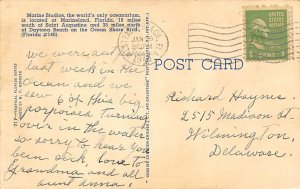 Marine Studios, the world's only oceanarium,
is located at Marineland, Florida, 18 miles
south of Saint Augustine and 35 miles north
of Daytona Beach on the Ocean Shore Blvd.
(Florida A1A).
POST CARD
1 CENT 1
JAN
we were out here
last week in the
Ocean and we
saw 6 of this big
porpoised turning
over in the water
So sorry to hear you
been sick, love to
Grandma and all
aunt Anna
Richard Haynes
2515 Madison St
Wilmington,
Delaware.